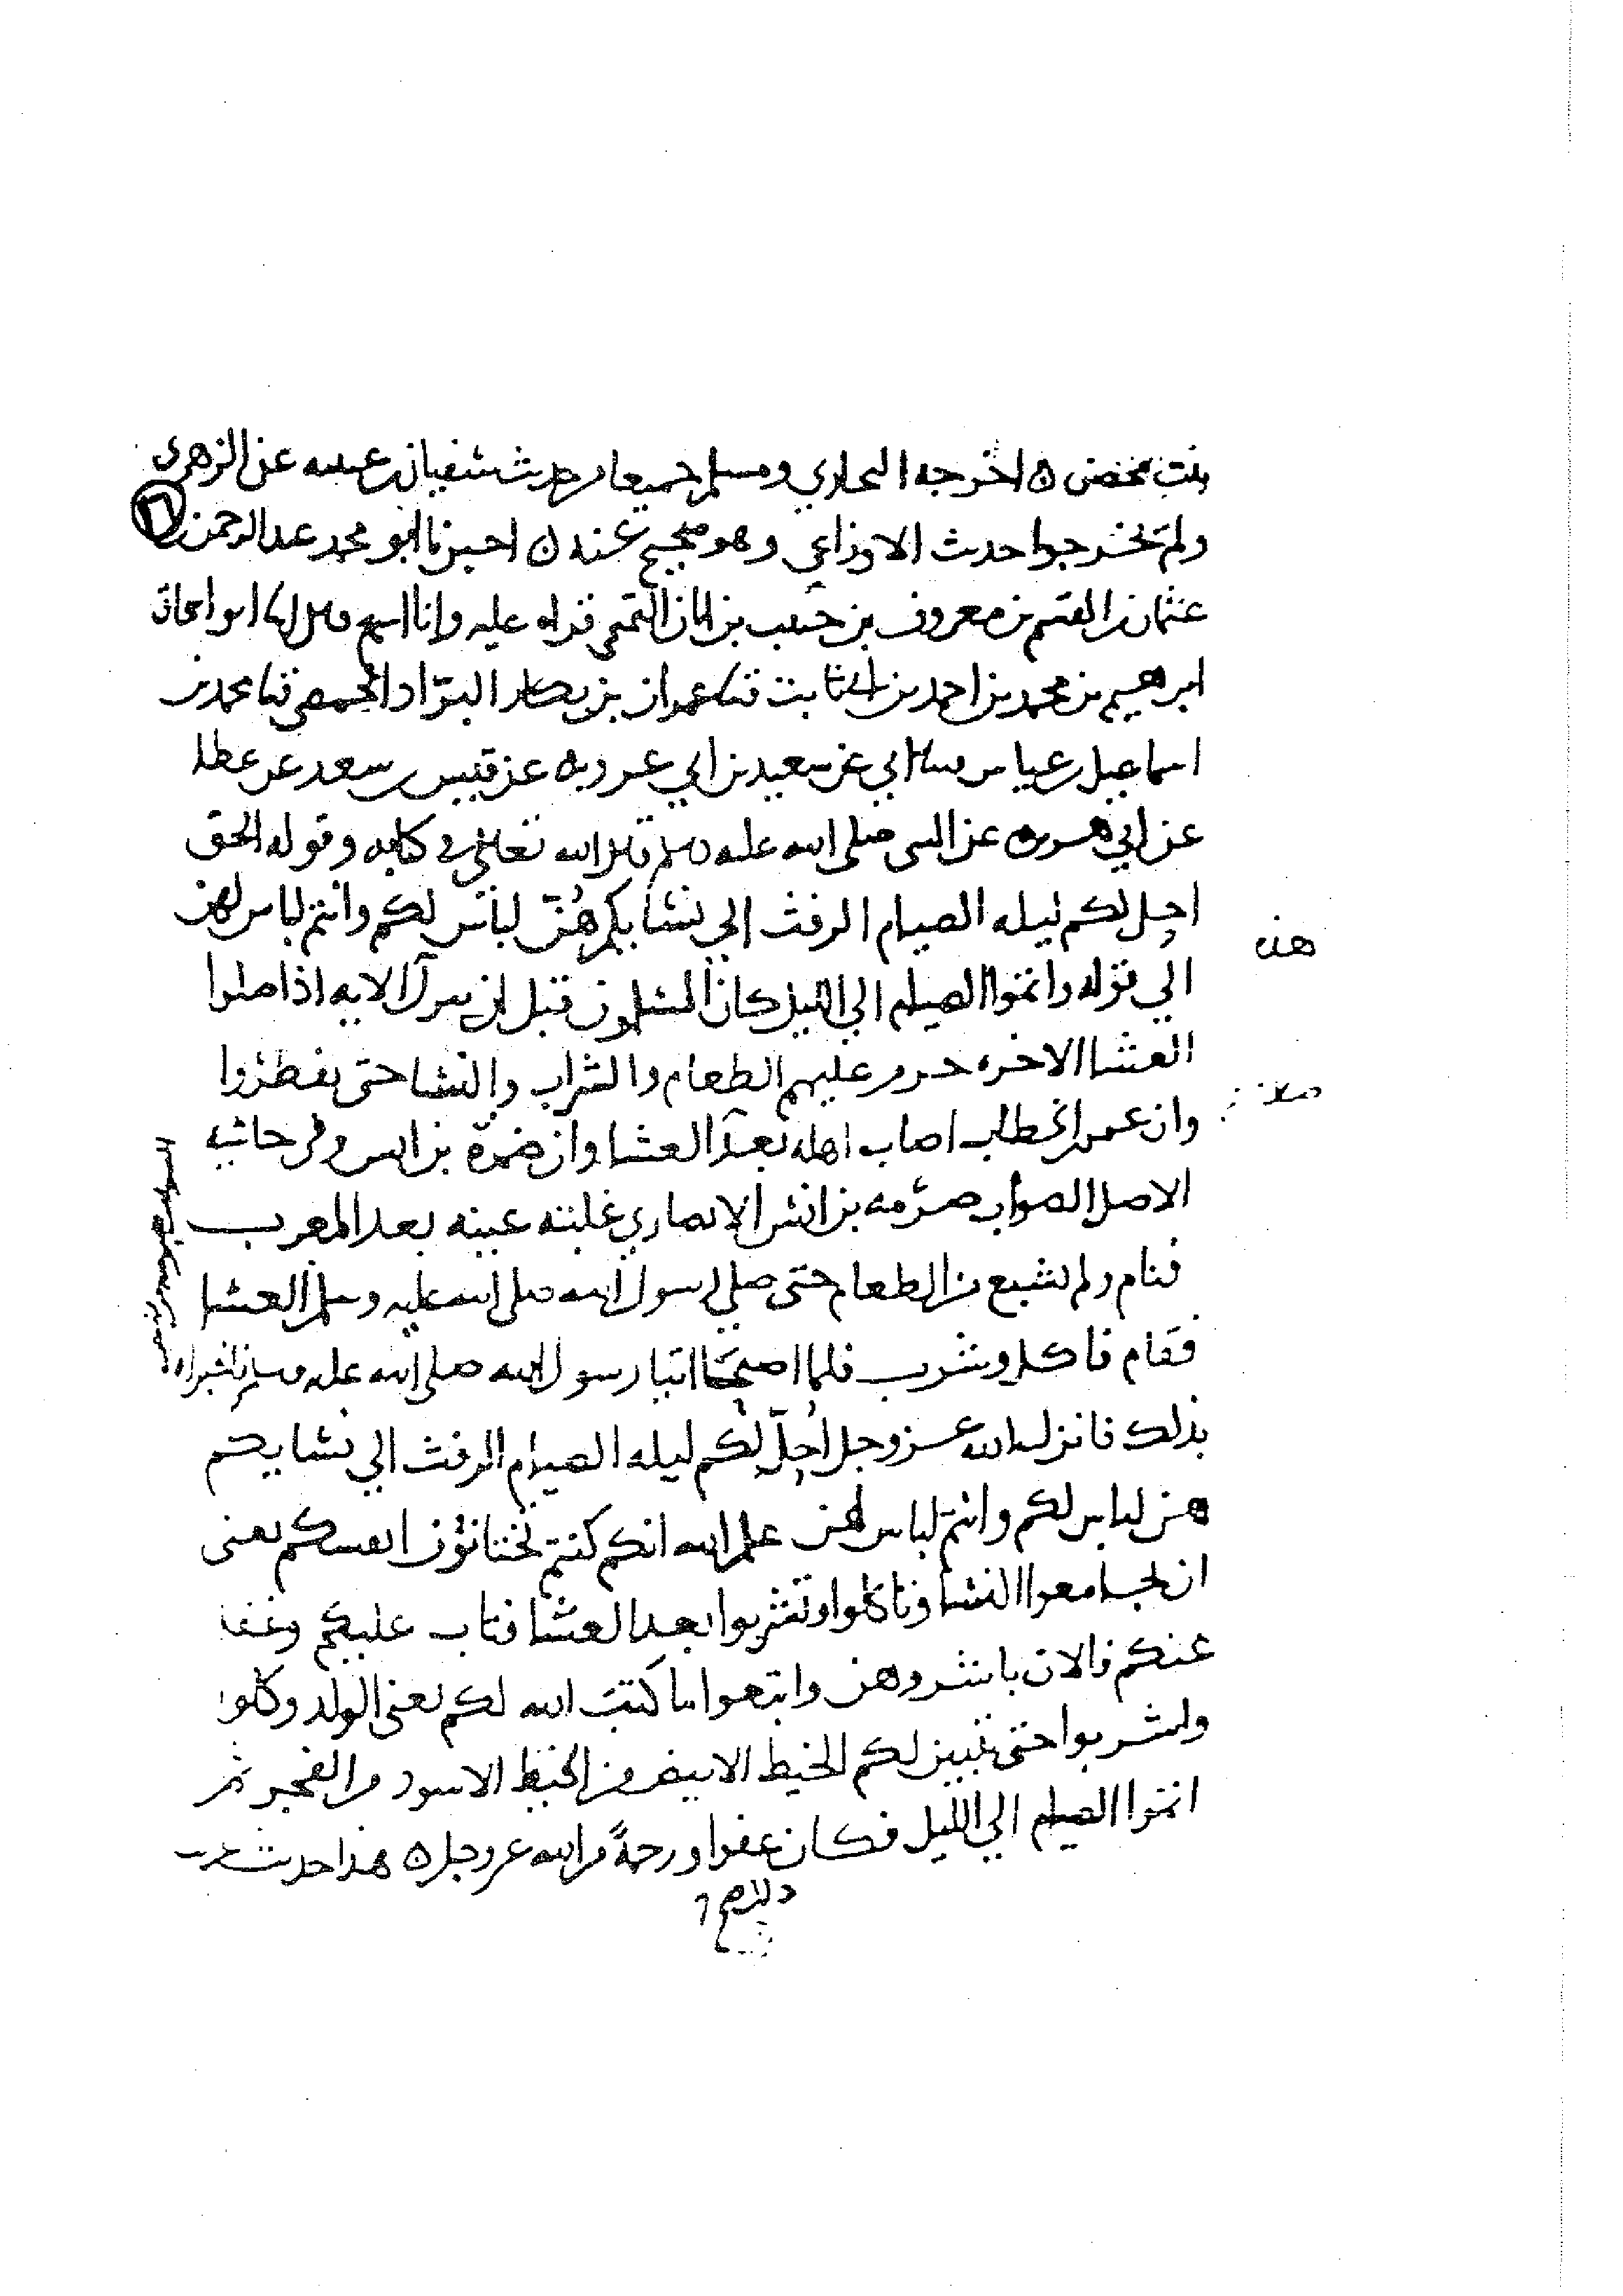 بنت محصن ه اخرجه البخاري ومسلم جميعا من حديث سفيان بن عيينه عن الزهري
ولم يخرجوا حديث الاوزاعي وهو صحيح عنه ه اخبرنا ابو محمد عبد الرحمن بن
عثمان بن القسم بن معروف بن حبيب بن ابان التميمي قراه عليه وانا اسمع قال ابنا ابو اسحاق
ابرهيم بن محمد بن احمد بن ابي ثابت ثنا عمران بن بكار البراد الحمصي ثنا محمد بن
اسماعيل بن عياش حدثنا ابي عن سعيد بن ابي عروبه عن قيس بن سعد عن عطا
عن ابي هريره عن النبي صلى الله عليه وسلم قال الله تعالى في كتابه وقوله الحق
احل لكم ليله الصيام الرفث الي نسايكم هن لباس لكم وانتم لباس لهن
هذه
الي قوله واتموا الصيام الي الليل كان المسلمون قبل ان ينزل الايه اذا صلوا
العشا الاخره حرم عليهم الطعام والشراب والنسا حتى يفطروا
وان عمر بن الخطاب اصاب اهله بعد العشا وان ضمرة بن انس وفي حاشيه
الاصل الصواب صرمه بن انس الانصاري غلبته عينه بعد المغرب
فنام ولم يشبع من الطعام حتى صلي رسول الله صلى الله عليه وسلم العشا
فقام فاكل وشرب فلما اصبحا اتيا رسول الله صلى الله عليه وسلم فاخبراه
بذلك فانزل الله عز وجل احل لكم ليله الصيام الرفث الي نسايكم
هن لباس لكم وانتم لباس لهن علم الله انكم كنتم تختانون انفسكم يعني
ان تجامعوا النسا وتاكلوا وتشربوا بعد العشا فتاب عليكم وعفا
عنكم فالان باشروهن وابتغوا ما كتب الله لكم يعني الولد وكلوا
واشربوا حتى يتبين لكم الخيط الابيض من الخيط الاسود من الفجر ثم
اتموا الصيام الي الليل فكان عفوا ورحمة من الله عز وجل ه هذا حديث غريب